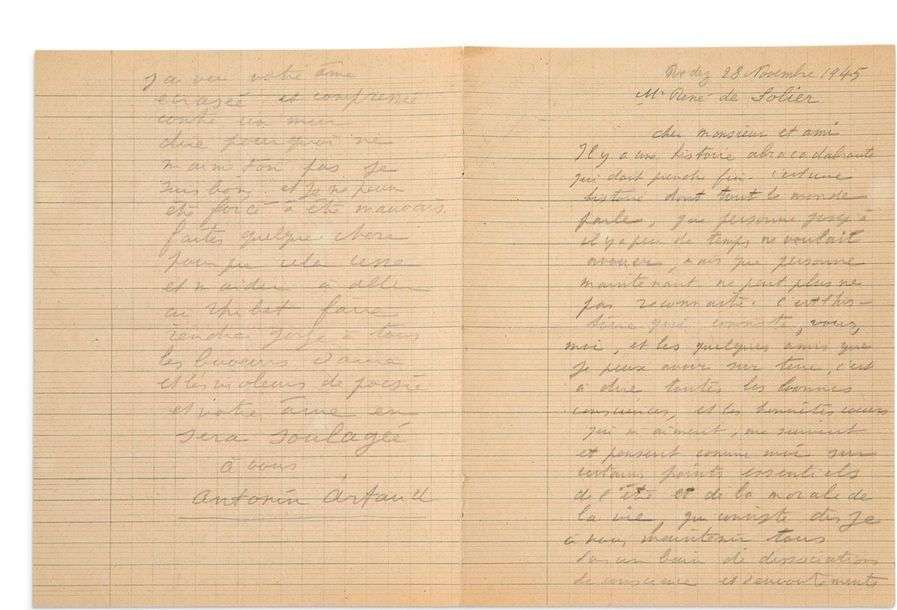 Rodez 28 Novembre 1945
Mr René de Solier
cher monsieur et ami
Il y a une histoire abracadabrante
qui doit prendre fin. c'est une
histoire dont tout le monde
parle, que personne jusqu'à
il y a peu de temps ne voulait
avouer, mais que personne
maintenant ne peut plus ne
pas reconnaître. C'est l'his-
toire qui consiste, vous,
moi, et les quelques amis que
je peux avoir sur terre, c'est
à dire toutes les bonnes
consciences, et les honnêtes cœurs
qui m'aiment, me suivent
et pensent comme moi sur
certains points essentiels
de l'être et de la morale de
la vie, qui consiste dis je
à nous maintenir tous
dans un bain de dissociations
de conscience et d'envoûtements
J'ai vu votre âme
écrasée et comprimée
contre un mur
dire pourquoi ne
m'aime t'on pas je
suis bon et je ne peux
être forcé à être mauvais.
faites quelque chose
pour que cela cesse
et m'aider à aller
au Thibet faire
rendre gorge à tous
les buveurs d'âme
et les violeurs de poésie
et votre âme en
sera soulagée
à vous
Antonin Artaud